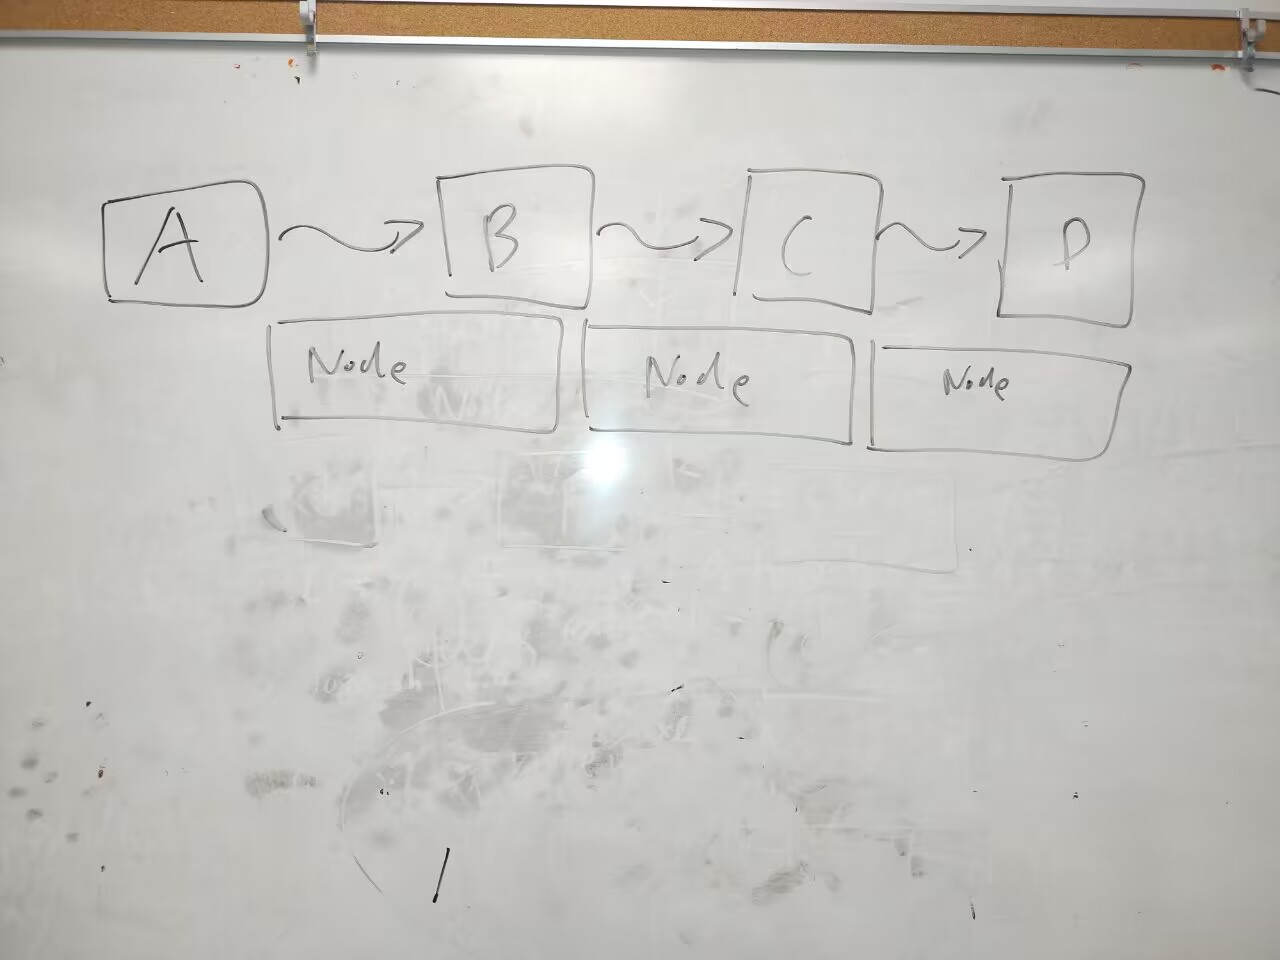 A B C D
Node Node Node